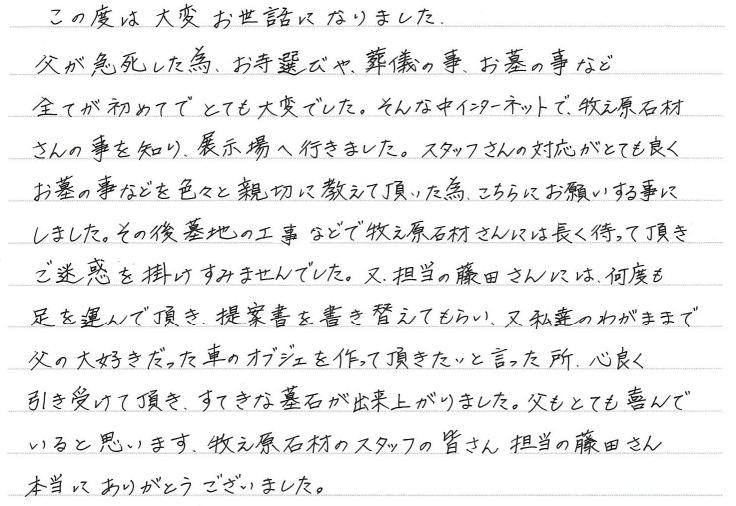 この度は大変お世話になりました.
父が急死した為、お寺選びや、葬儀の事、お墓の事など
全てが初めてでとても大変でした。そんな中インターネットで、牧之原石材
さんの事を知り、展示場へ行きました。スタッフさんの対応がとても良く
お墓の事などを色々と親切に教えて頂いた為、こちらにお願いする事に
しました。その後墓地の工事などで牧之原石材さんには長く待って頂き
ご迷惑を掛けすみませんでした。又、担当の藤田さんには、何度も
足を運んで頂き、提案書を書き替えてもらい、又私達のわがままで
父の大好きだった車のオブジェを作って頂きたいと言った所、心良く
引き受けて頂き、すてきな墓石が出来上がりました。父もとても喜んで
いると思います、牧之原石材のスタッフの皆さん 担当の藤田さん
本当にありがとうございました。